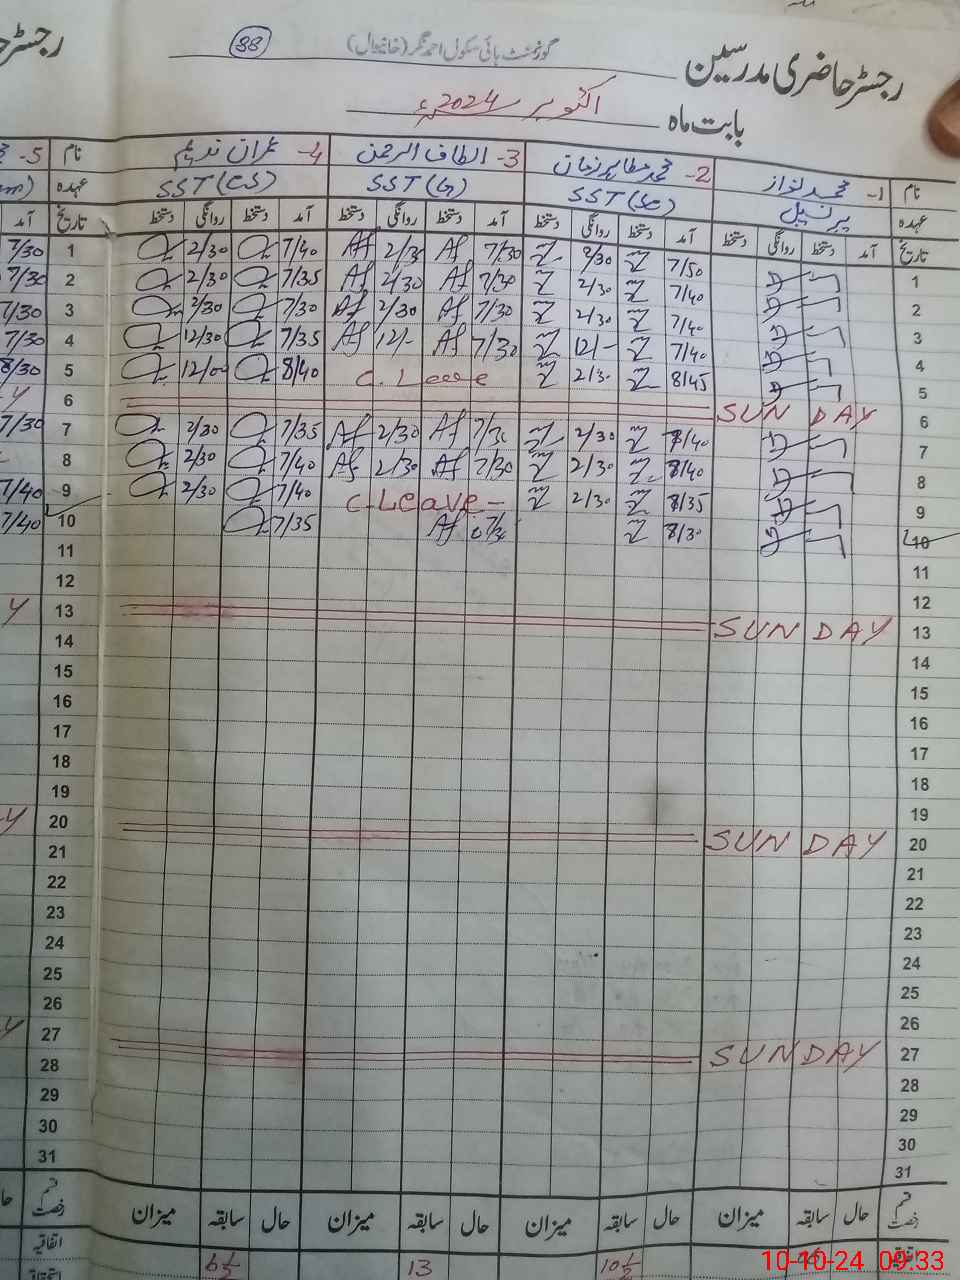 رجسٹر حاضری مدرسین
گورنمنٹ ہائی سکول احمد نگر (خانیوال)
88
بابت ماہ اکتوبر 2024ء
نام 1- محمد نواز 2- محمد 3- الطاف الرحمن 4- عمران ندیم نام 5-
عہدہ پرنسپل SST (Sc) SST (G) SST (CS) عہدہ
تاریخ آمد دستخط روانگی دستخط آمد دستخط روانگی دستخط آمد دستخط روانگی دستخط آمد دستخط روانگی دستخط تاریخ آمد
1 7/50 2/30 7/30 Af 2/30 Af 7/40 2/30 1 7/30
2 7/40 2/30 7/30 Af 2/30 Af 7/35 2/30 2 7/30
3 7/40 2/30 7/30 Af 2/30 Af 7/30 2/30 3 7/30
4 7/40 12/- 7/30 Af 12/- Af 7/35 12/30 4 7/30
5 8/45 2/30 C. Leave 8/40 12/00 5 8/30
6 SUNDAY 6 Y
7 2/30 7/30 Af 2/30 Af 7/35 2/30 7 7/30
8 8/40 2/30 7/30 Af 2/30 Af 7/40 2/30 8
9 8/35 2/30 C.Leave - 7/40 2/30 9 7/40
10 8/30 7/30 Af 7/35 10 7/40
11 11
12 12
13 SUNDAY 13 Y
14 14
15 15
16 16
17 17
18 18
19 19
20 SUNDAY 20 Y
21 21
22 22
23 23
24 24
25 25
26 26
27 SUNDAY 27 Y
28 28
29 29
30 30
31 31
قسم رخصت حال سابقہ میزان حال سابقہ میزان حال سابقہ میزان حال سابقہ میزان قسم رخصت حال
اتفاقیہ 10½ 13 6½ اتفاقیہ
10-10-24 09:33